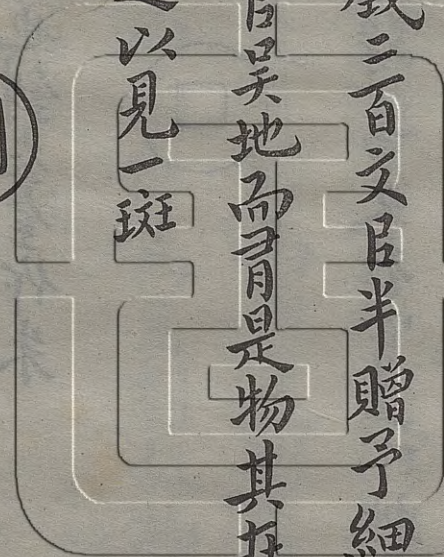 二百文半贈予細
吴地而是物其
以見一斑